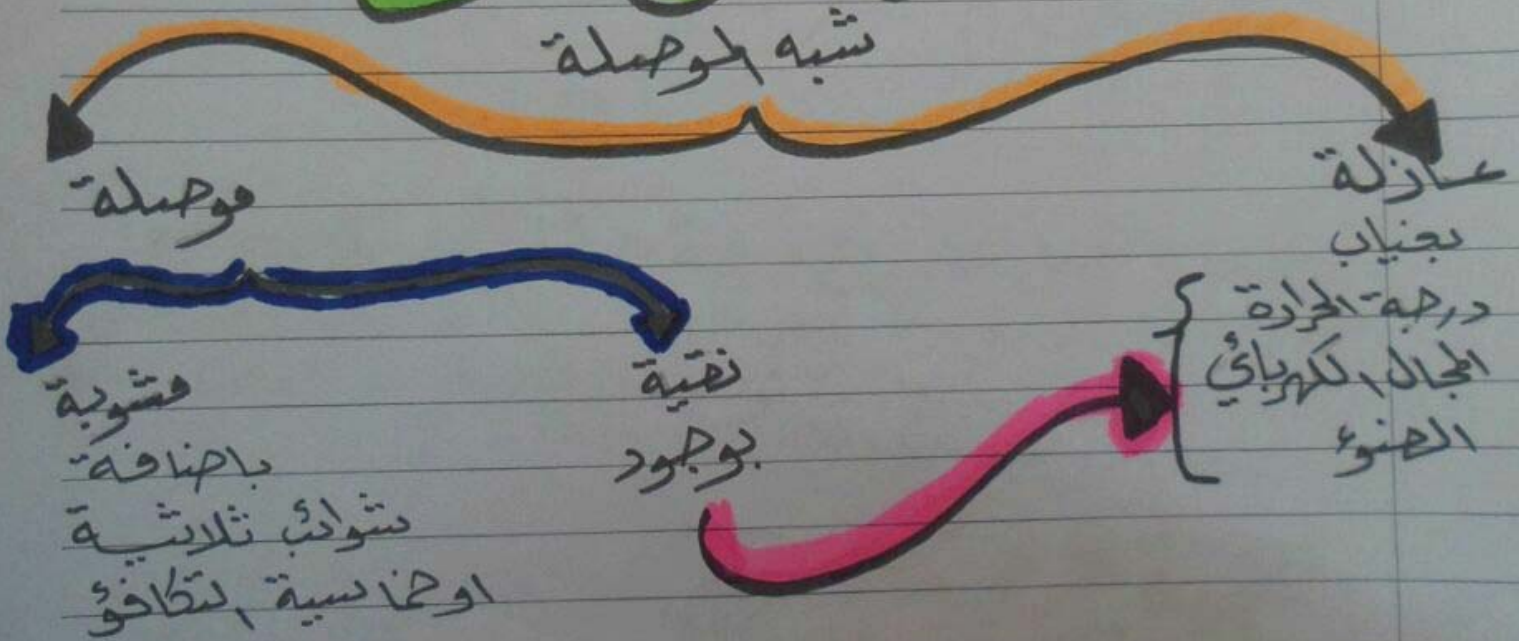 شبه الموصلة
عازلة
بغياب
درجة الحرارة
المجال الكهربائي
الضوء
موصلة
نقية
بوجود
مشوبة
باضافة
شوائب ثلاثية
او خماسية التكافؤ